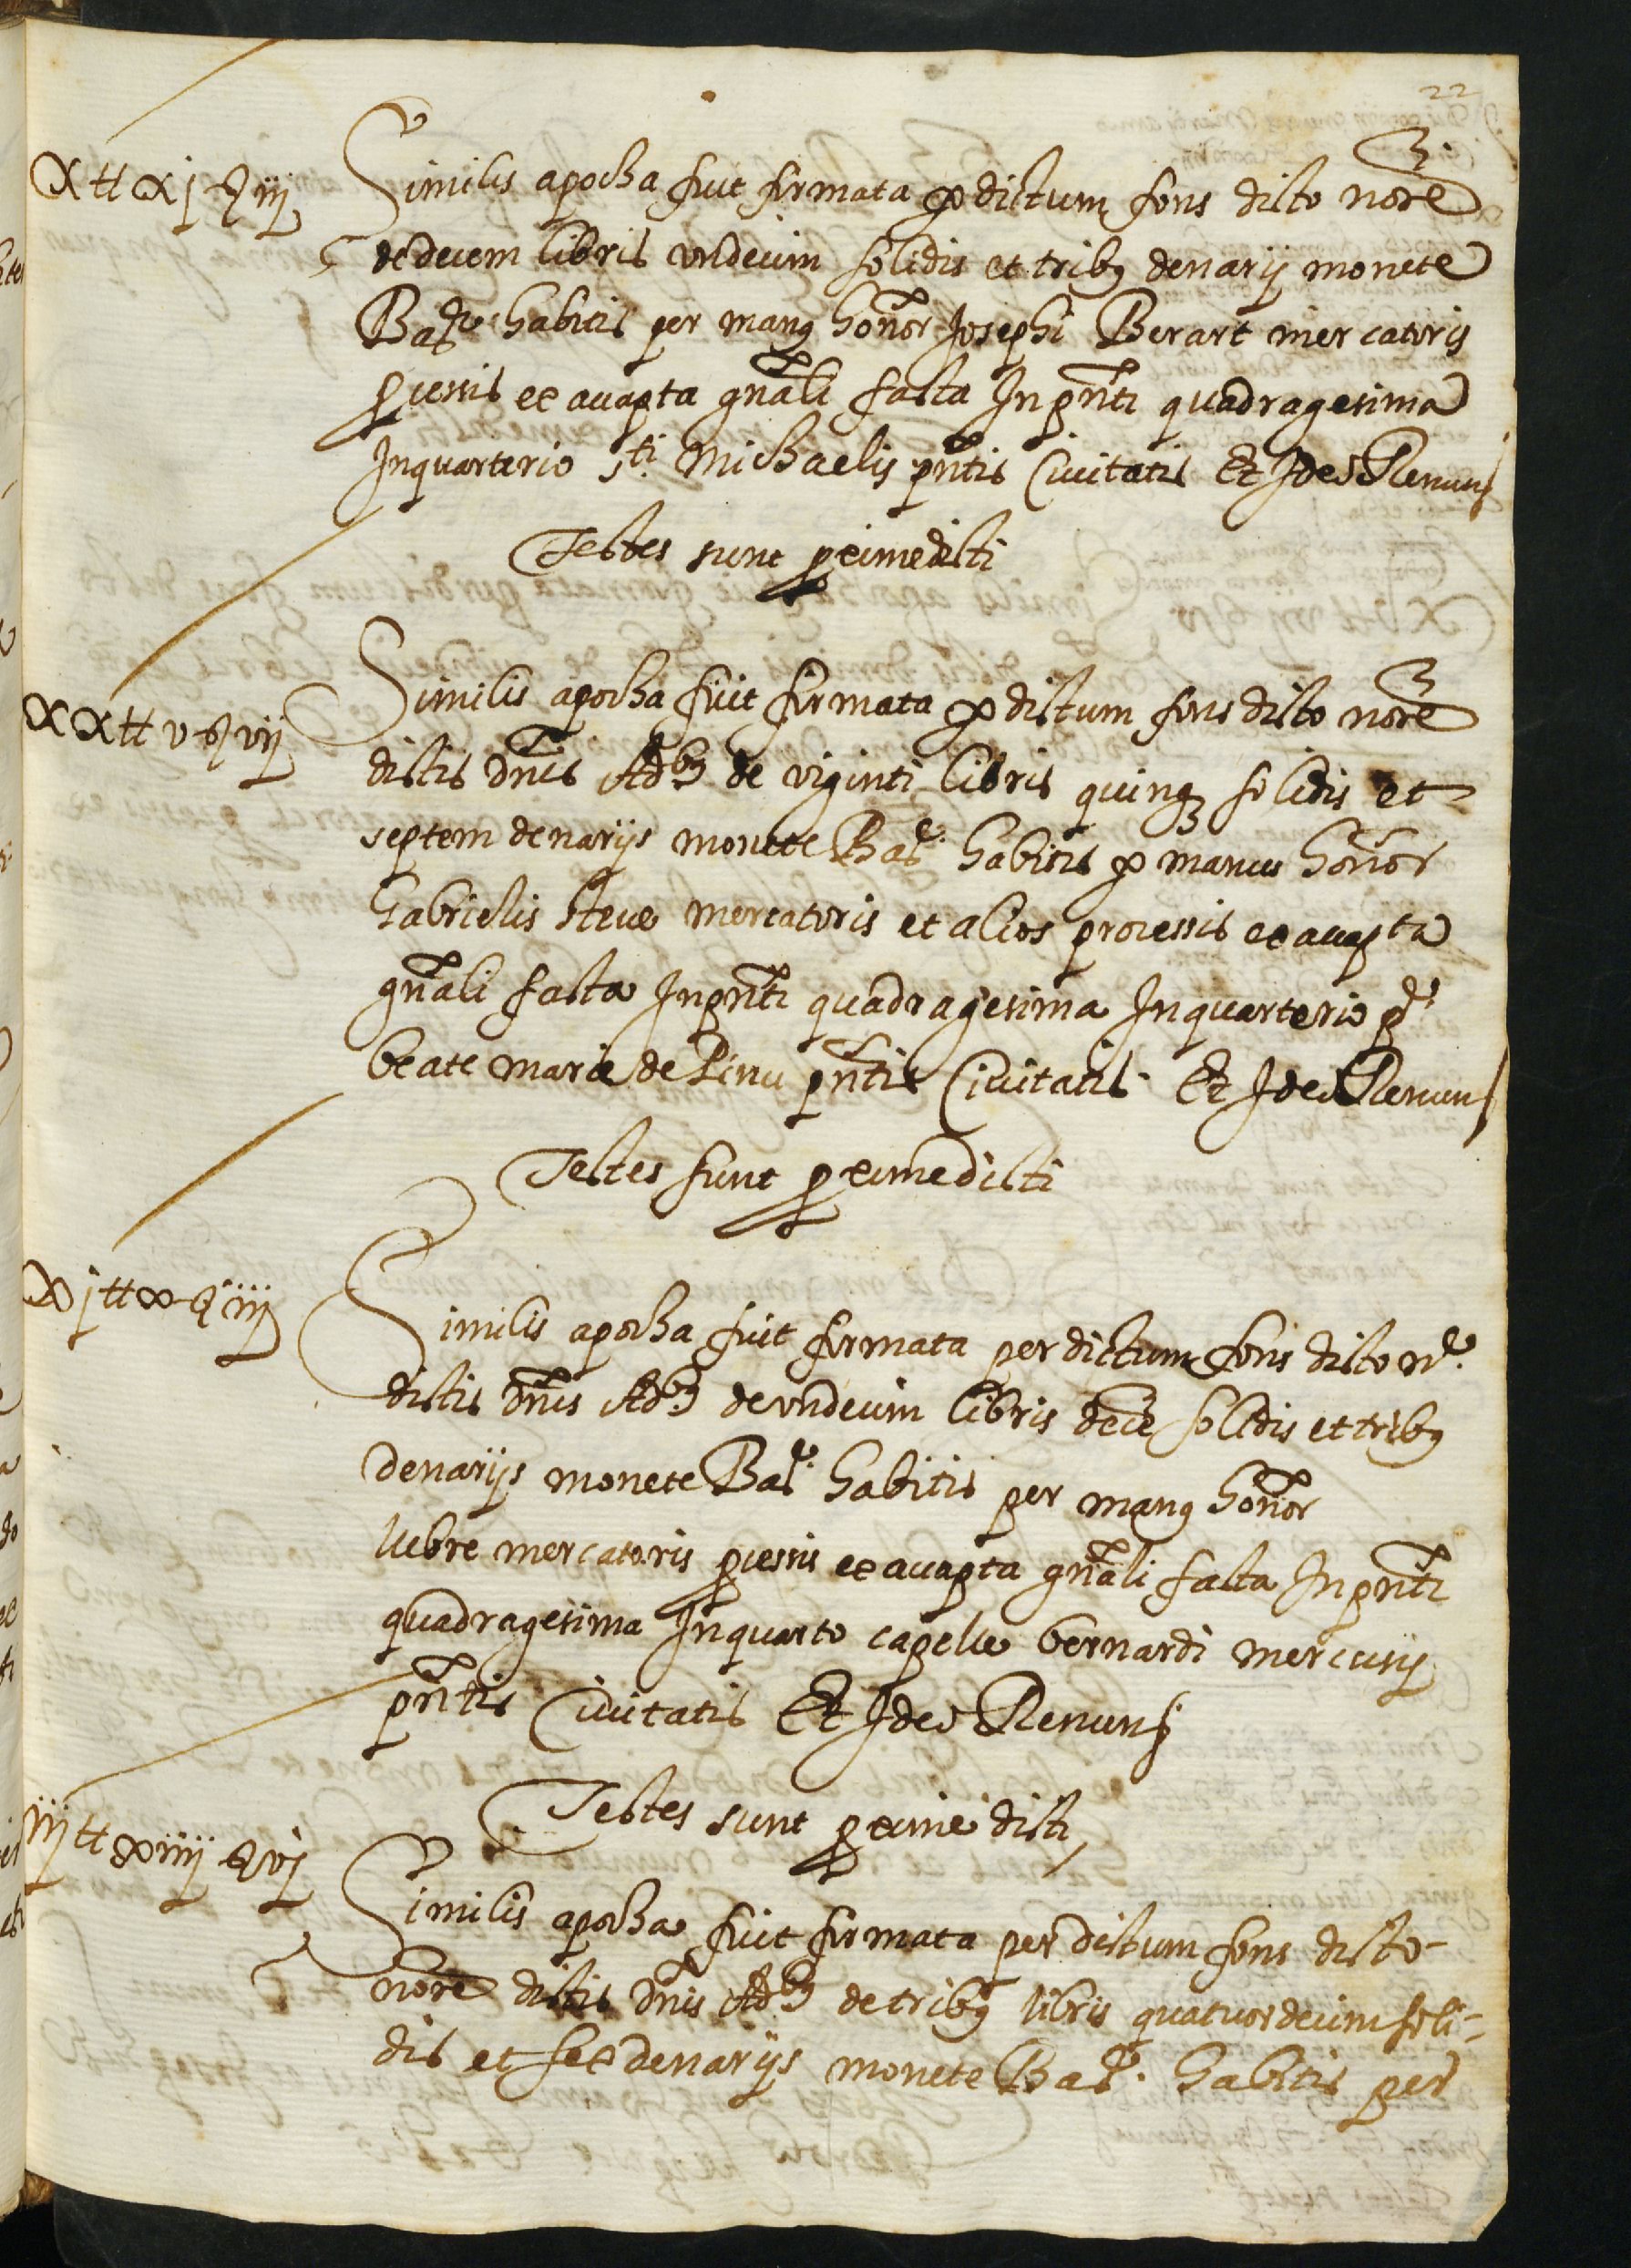 22
X tt xj ₰ iij
Similis apocha fuit firmata p dictum fons dicto noře
de decem libris undecim solidis et tribq denarij monete
Baȓ habitis per manq hoñor Josephi Berart mercatoris
pcessis ex accapta gñali facta In pñti quadragesima
In quarterio sti Michaelis pñtis Civitatis Et Ideo Renunȷ
Testes sunt proximedicti
XX tt v ₰ vij
Similis apocha fuit firmata p dictum fons dicto noře
dictis Dñis Adbȝ de viginti libris quinqȝ solidis et
septem denarijs monete Baȓ habitis p manus hoñor
Gabrielis Steve mercatoris et alios processis ex accapta
gñali facta In pñti quadragesima In quarterio
beate marie de Pinu pñtis Civitatis Et Ideo Renunȷ
Testes sunt proximedicti
Xj tt x ₰ iij
Similis apocha fuit firmata per dictum fons dicto nͬe
dictis Dñis Adbȝ de undecim libris dece solidis et tribq
denarijs monete Baȓ habitis per manq hoñor
llebre mercatoris pcessis ex accapta gñali facta In pñti
quadragesima In quarto capelle bernardi mercusij
pñtis Civitatis Et Ideo Renunȷ
Testes sunt proximedicti
iij tt xiiij ₰ vj
Similis apocha fuit firmata per dictum fons dicto
noře dictis Dñis Adbȝ de tribq libris quatuordecim soli-
dis et sex denarijs monete Baȓ habitis per